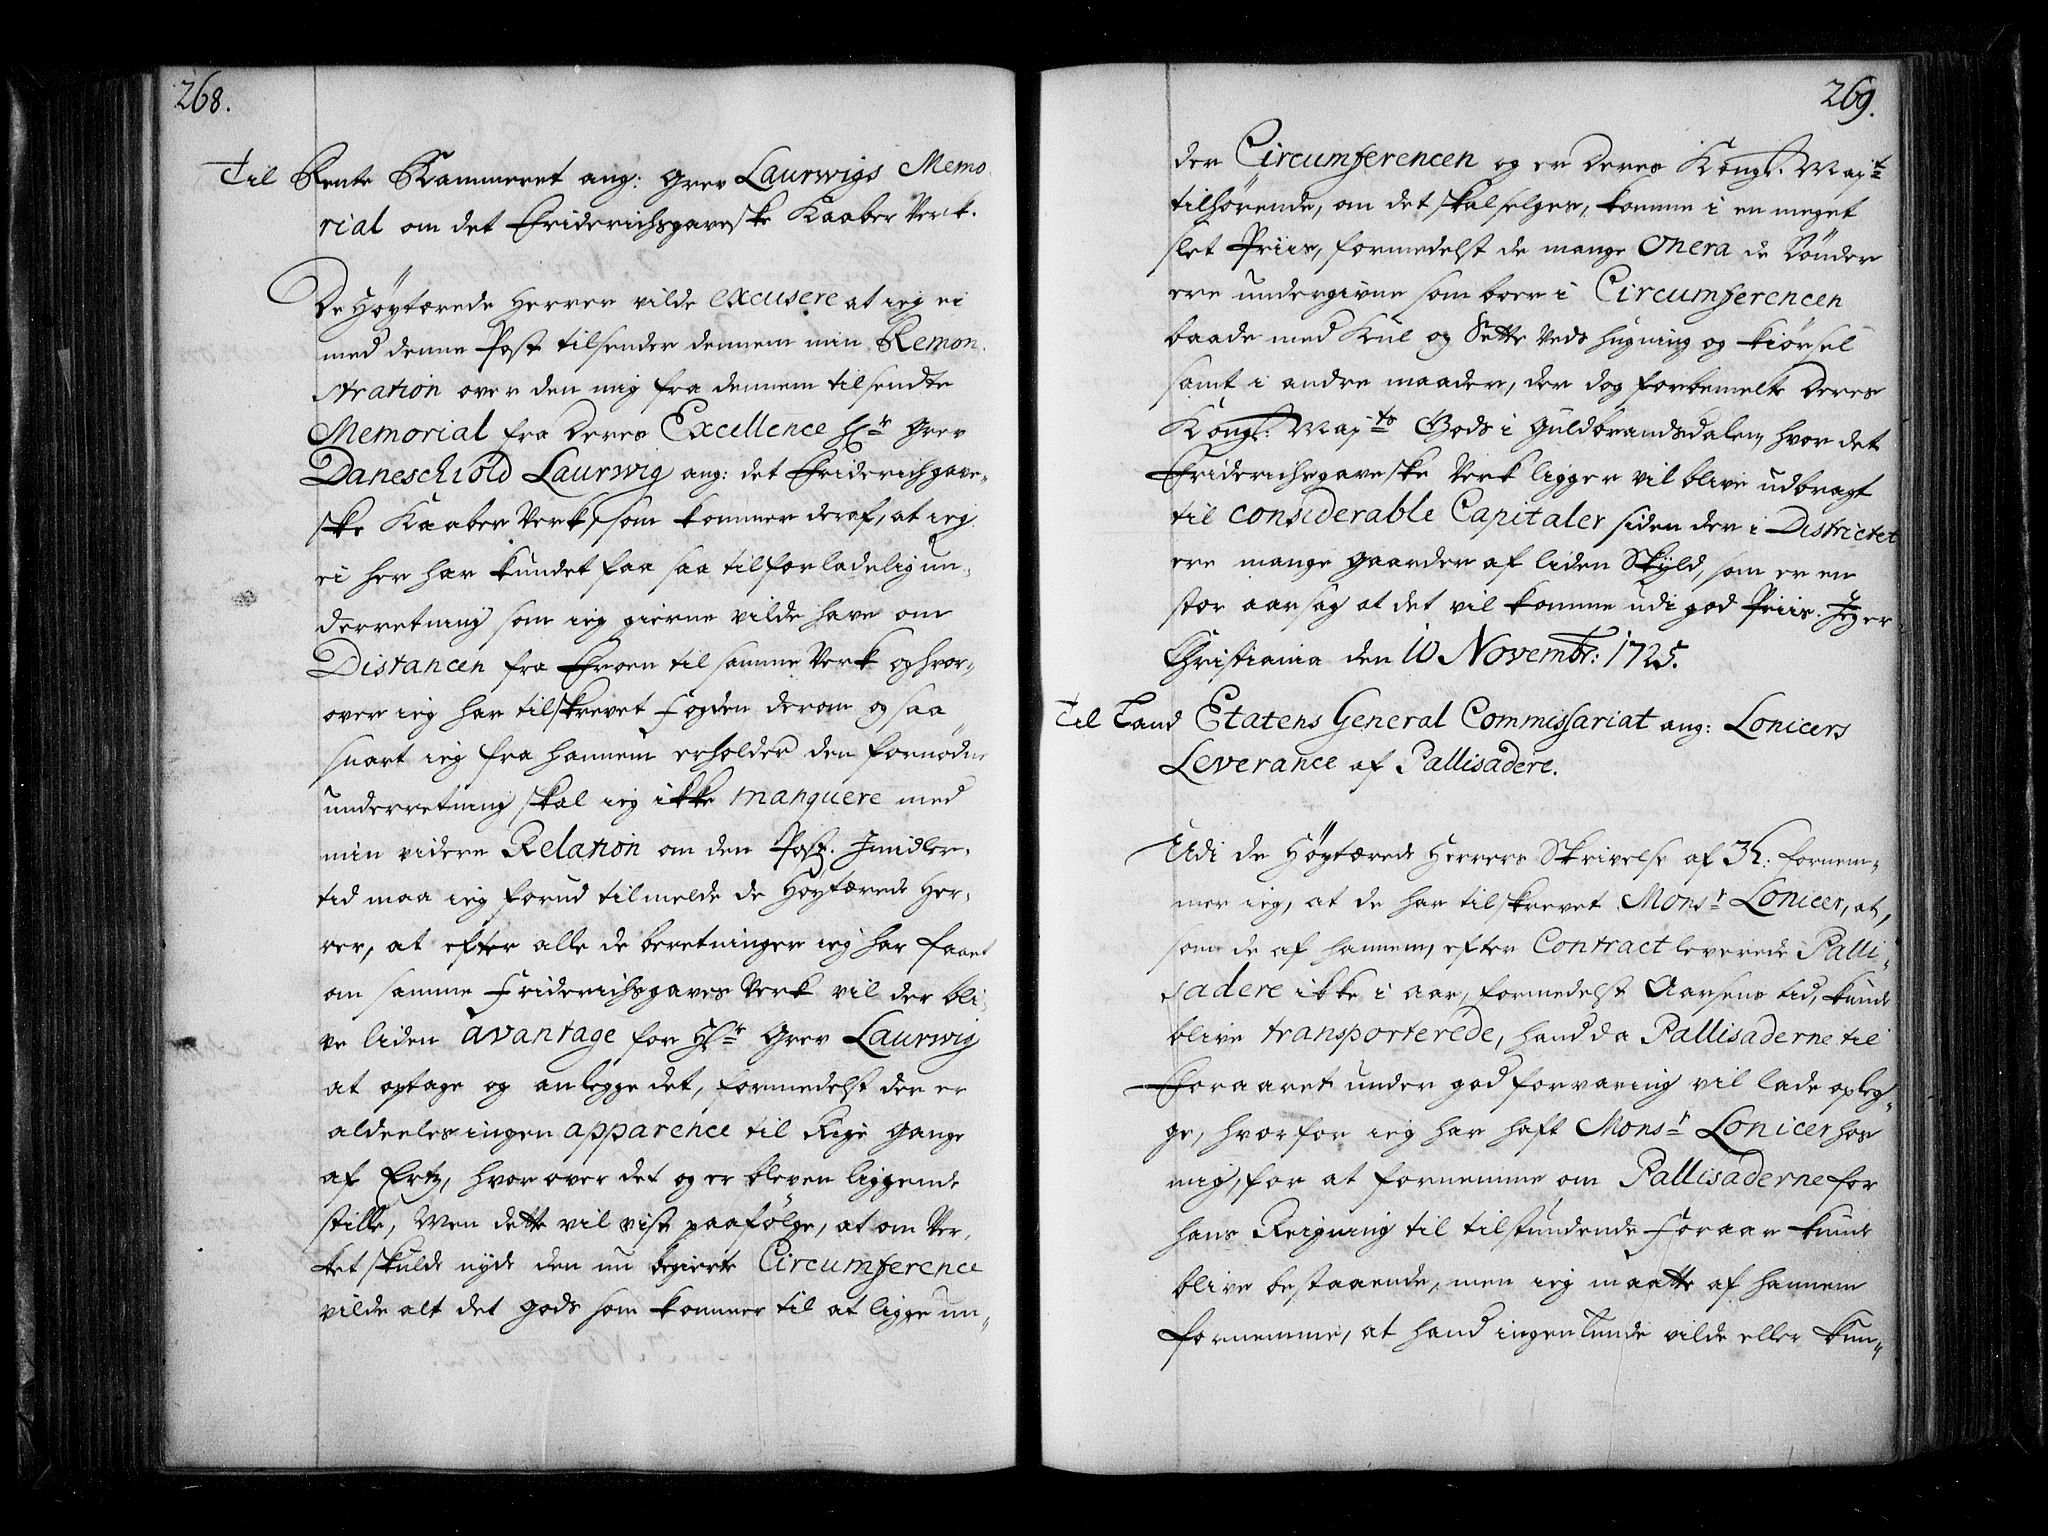 268.
Til Rente Kammeret ang: Grev Laurwigs Memo
rial om det Friderichsgaveske Kaaber Verk.
De Høytærede Herrer vilde excusere at ieg ei
med denne Post tilsender dennem min Remon-
stration over den mig fra dennem tilsendte
Memorial fra Deres Excellence Hr Grev
Daneschiold Laurwig ang: det Friderichgave-
ske Kaaber Verk, som kommer deraf, at ieg
ei her har kundet faa saa tilforladelig un-
derretning som ieg gierne vilde have om
Distancen fra Froen til samme Verk og hvor-
over ieg har tilskrevet Fogden derom og saa
snart ieg fra hannem erholder den fornødne
underretning skal ieg ikke manquere med
min videre Relation om den Post. Imidler-
tid maa ieg forud tilmelde de Høytærede Her-
rer, at efter alle de beretninger ieg har faaet
om samme Friderichsgaves Verk vil der bli-
ve liden avantage for Hr Grev Laurwig
at optage og anlegge det, formedelst der er
aldeeles ingen apparence til Rige Gange
af Ertz, hvorover det og er bleven liggende
stille, Men dette vil vist paafølge, at om Ver-
ket skulde nyde den nu begierte Circumference
vilde alt det gods som kommer til at ligge un-
269.
der Circumferencen og er Deres Kongl. Mayt
tilhørende, om det skal selges, komme i en meget
slet Priis, formedelst de mange Onera de Bønder
ere undergivne som boer i Circumferencen
baade med Kul og Sette Veds hugning og kiørsel
samt i andre maader, der dog forbemelte Deres
Kongl: Mayts Gods i Guldbrandsdalen, hvor det
Friderichsgaveske Verk ligger vil blive udbragt
til considerable Capitaler siden der i Districtet
ere mange gaarder af liden Skyld, som er en
stor aarsag at det vil komme udi god Priis. Jeg er
Christiania den 10 Novembr: 1725.
Til Land Etatens General Commissariat ang: Lonicers
Leverance af Pallisadere.
Udi de Høytærede Herrers Skrivelse af 3t: fornem-
mer ieg, at de har tilskrevet Monsr Lonicer, at,
som de af hannem, efter Contract leverede Palli-
sadere ikke i aar, formedelst Aarsens tid, kunde
blive transporterede, hand da Pallisaderne til
Foraaret under god forvaring vil lade opleg-
ge, hvorfor ieg har haft Monsr Lonicer hos
mig, for at fornemme om Pallisaderne for
hans Reigning til tilstundende Foraar kunde
blive bestaaende, men ieg maatte af hannem
fornemme, at hand ingenlunde vilde eller kun-